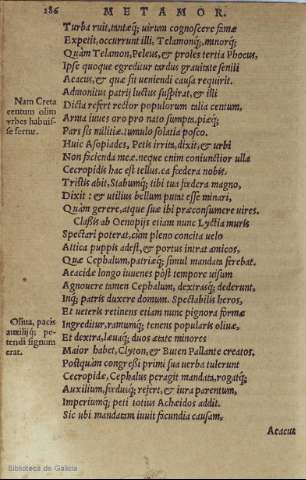 186 METAMOR.
Turba ruit, tantæq; uirum cognoscere famæ
Expetit, occurrunt illi, Telamonq́; minorq́;
Quàm Telamon, Peleus, & proles tertia Phocus,
Ipse quoque egreditur tardus grauitate senili
Aeacus, & quæ sit ueniendi causa requirit.
Admonitus patrij luctus suspirat, & illi
Nam Creta
centum olim
vrbes habuis-
se fertur.
Dicta refert rector populorum talia centum,
Arma iuues oro pro nato sumpta, piæq́;
Pars sis militiæ. tumulo solatia posco.
Huic Asopiades, Petis irrita, dixit, & urbi
Non facienda meæ. neque enim coniunctior ulla
Cecropidis hac est tellus. ea fœdera nobis.
Tristis abit, Stabuntq́; tibi tua fœdera magno,
Dixit: & utilius bellum putat esse minari,
Quàm gerere, atque suæ ibi præconsumere uires.
Classis ab Oenopijs etiam nunc Lyctia muris
Spectari poterat, cùm pleno concita uelo
Attica puppis adest, & portus intrat amicos
Quæ Cephalum, patriæq́; simul mandata ferebat.
Aeacidæ longo iuuenes post tempore uisum
Agnouere tamen Cephalum, dextrasq́; dederunt,
Inq́; patris duxere domum. Spectabilis heros,
Et ueteris retinens etiam nunc pignora formæ
Oliua, pacis
auxilijq́; pe-
tendi signum
erat.
Ingreditur, ramumq́; tenens popularis oliuæ,
Et dextra, læuaq́; duos ætate minores
Maior habet, Clyton, & Buten Pallante creatos,
Postquàm congressus primi sua uerba tulerunt
Cecropidæ, Cephalus peragit mandata, rogatq́;
Auxilium, fœdusq́; refert, & iura parentum,
Imperiumq́; peti totius Achæidos addit.
Sic ubi mandatam iuuit facundia causam,
Aeacus
Biblioteca de Galicia